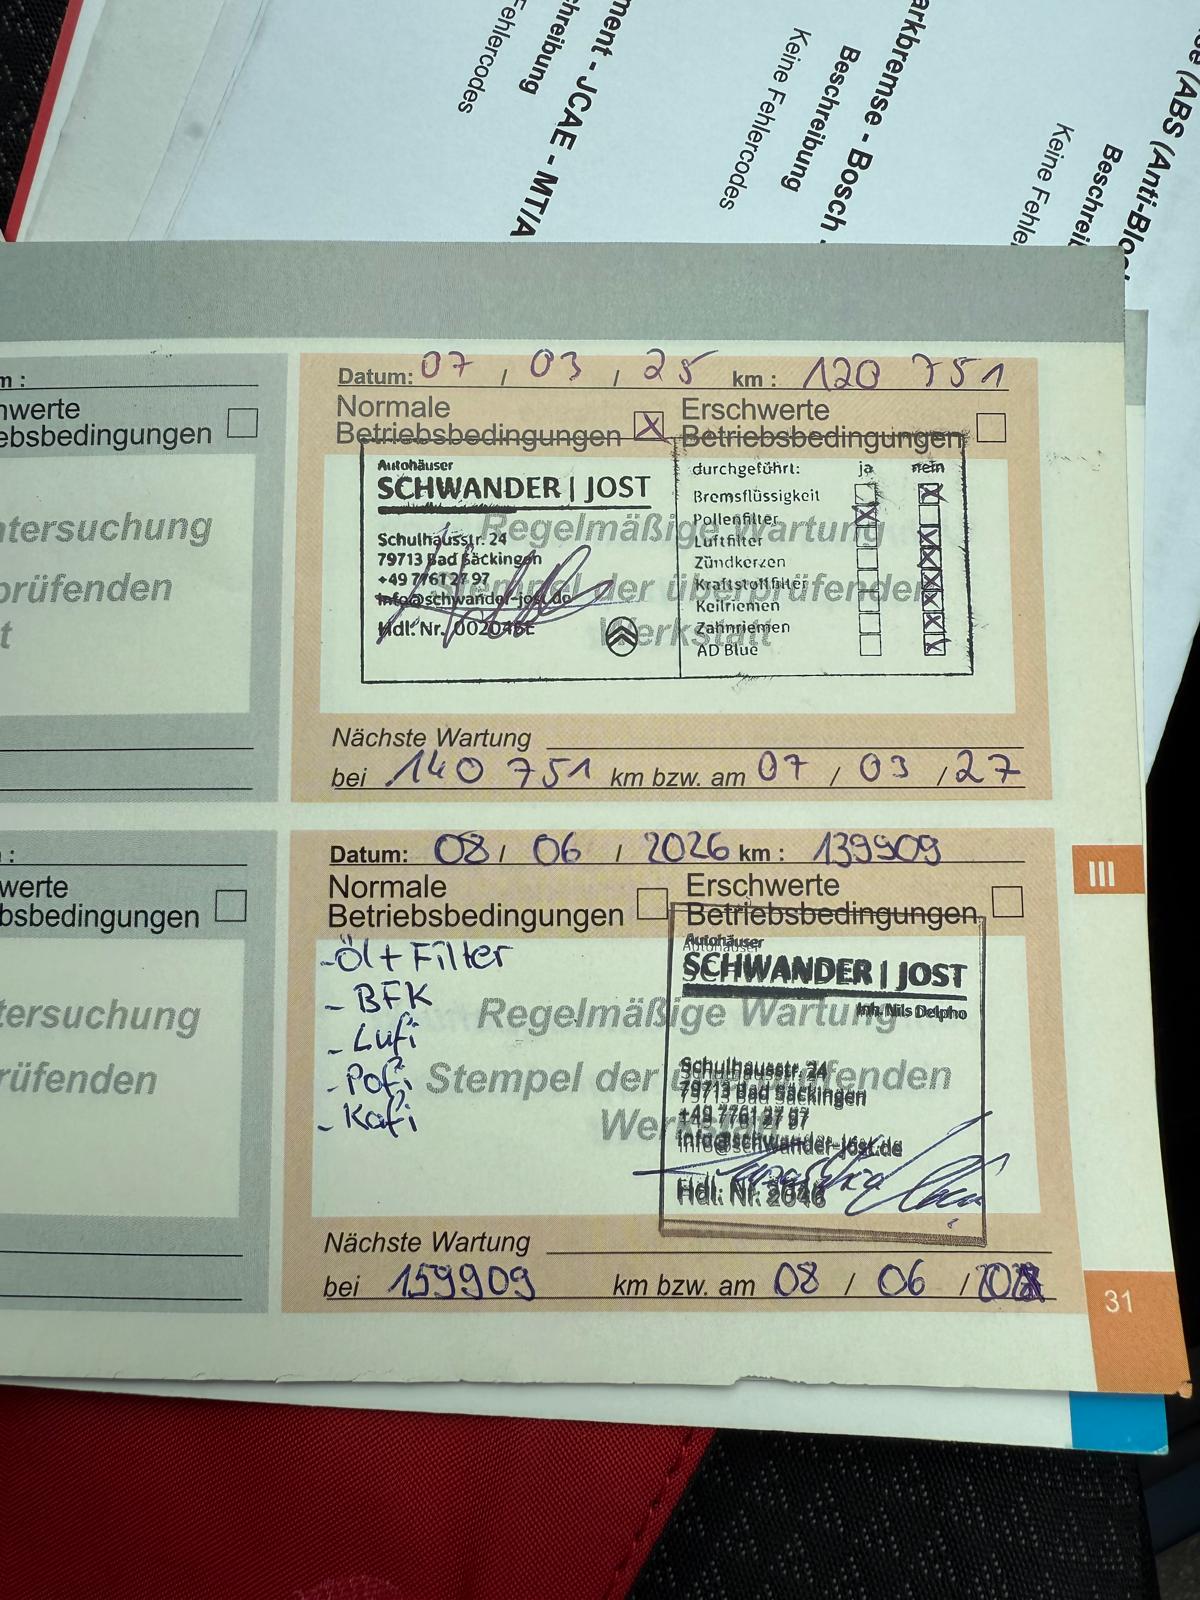 ment - JCAE - MT/A
hreibung
Fehlercodes
arkbremse - Bosch
Beschreibung
Keine Fehlercodes
(ABS (Anti-Bloc
Beschreib
Keine Fehler
m :
hwerte
ebsbedingungen
ntersuchung
prüfenden
t
Datum: 07 / 03 / 25 km : 120 751
Normale Betriebsbedingungen X
Erschwerte Betriebsbedingungen
Regelmäßige Wartung
Stempel der überprüfenden
Werkstatt
Autohäuser
SCHWANDER | JOST
Schulhausstr. 24
79713 Bad Säckingen
+49 7761 27 97
info@schwander-jost.de
Hdl. Nr.
durchgeführt: ja nein
Bremsflüssigkeit
Pollenfilter
Luftfilter
Zündkerzen
Kraftstoffilter
Keilriemen
Zahnriemen
AD Blue
Nächste Wartung
bei 140 751 km bzw. am 07 / 03 / 27
:
werte
bsbedingungen
tersuchung
rüfenden
Datum: 08 / 06 / 2026 km : 139909
Normale Betriebsbedingungen
Erschwerte Betriebsbedingungen
- Öl + Filter
- BFK
- Lufi
- Pofi
- Kafi
Regelmäßige Wartung
Stempel der überprüfenden
Werkstatt
Autohäuser
SCHWANDER | JOST
Inh. Nils Delpho
Schulhausstr. 24
79713 Bad Säckingen
+49 7761 27 97
info@schwander-jost.de
Hdl. Nr. 2046
Nächste Wartung
bei 159909 km bzw. am 08 / 06 /
III
31